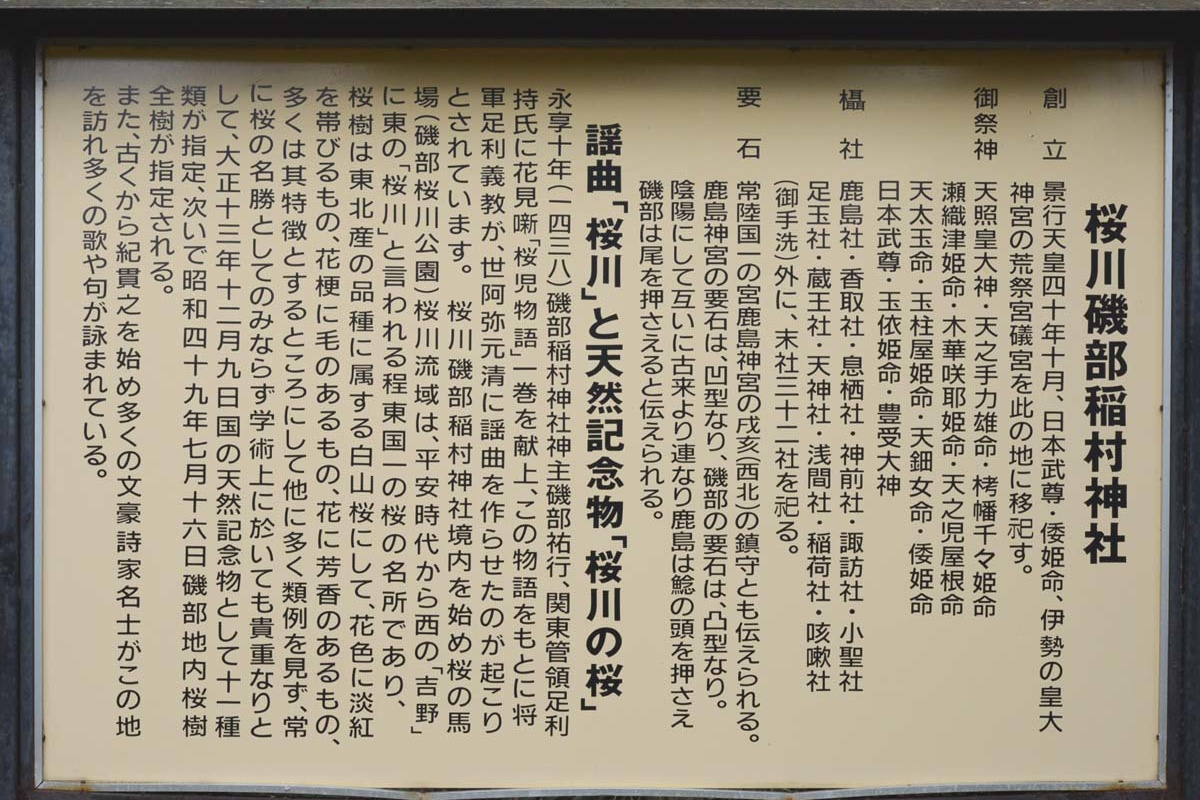 桜川磯部稲村神社
創　立　景行天皇四十年十月、日本武尊・倭姫命、伊勢の皇大
神宮の荒祭宮礒宮を此の地に移祀す。
御祭神　天照皇大神・天之手力雄命・栲幡千々姫命
瀬織津姫命・木華咲耶姫命・天之児屋根命
天太玉命・玉柱屋姫命・天鈿女命・倭姫命
日本武尊・玉依姫命・豊受大神
櫑　社　鹿島社・香取社・息栖社・神前社・諏訪社・小聖社
足玉社・蔵王社・天神社・浅間社・稲荷社・咳嗽社
(御手洗)外に、末社三十二社を祀る。
要　石　常陸国一の宮鹿島神宮の戌亥(西北)の鎮守とも伝えられる。
鹿島神宮の要石は、凹型なり、磯部の要石は、凸型なり。
陰陽にして互いに古来より連なり鹿島は鯰の頭を押さえ
磯部は尾を押さえると伝えられる。
謡曲「桜川」と天然記念物「桜川の桜」
永享十年(一四三八)磯部稲村神社神主磯部祐行、関東管領足利
持氏に花見噺「桜児物語」一巻を献上、この物語をもとに将
軍足利義教が、世阿弥元清に謡曲を作らせたのが起こり
とされています。　桜川磯部稲村神社境内を始め桜の馬
場(磯部桜川公園)桜川流域は、平安時代から西の「吉野」
に東の「桜川」と言われる程東国一の桜の名所であり、
桜樹は東北産の品種に属する白山桜にして、花色に淡紅
を帯びるもの、花梗に毛のあるもの、花に芳香のあるもの、
多くは其特徴とするところにして他に多く類例を見ず、常
に桜の名勝としてのみならず学術上に於いても貴重なりと
して、大正十三年十二月九日国の天然記念物として十一種
類が指定、次いで昭和四十九年七月十六日磯部地内桜樹
全樹が指定される。
また、古くから紀貫之を始め多くの文豪詩家名士がこの地
を訪れ多くの歌や句が詠まれている。